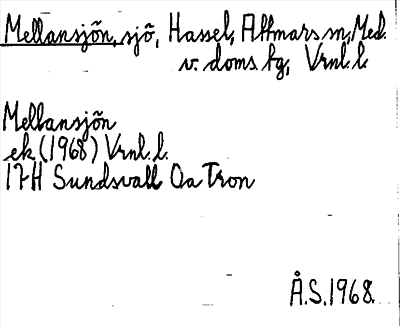 Mellansjön, sjö, Hassel, Attmars sn, Med.
v. doms. fg, Vrnl. l.
Mellansjön
ek (1968) Vrnl. l.
17H Sundsvall Oa Tron
Å.S. 1968.